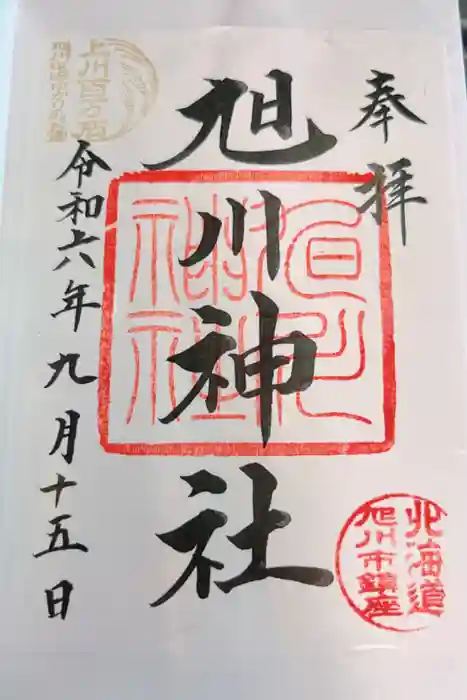 奉拝
旭川神社
令和六年九月十五日
上川百万石
旭川神社
北海道
旭川市鎮座